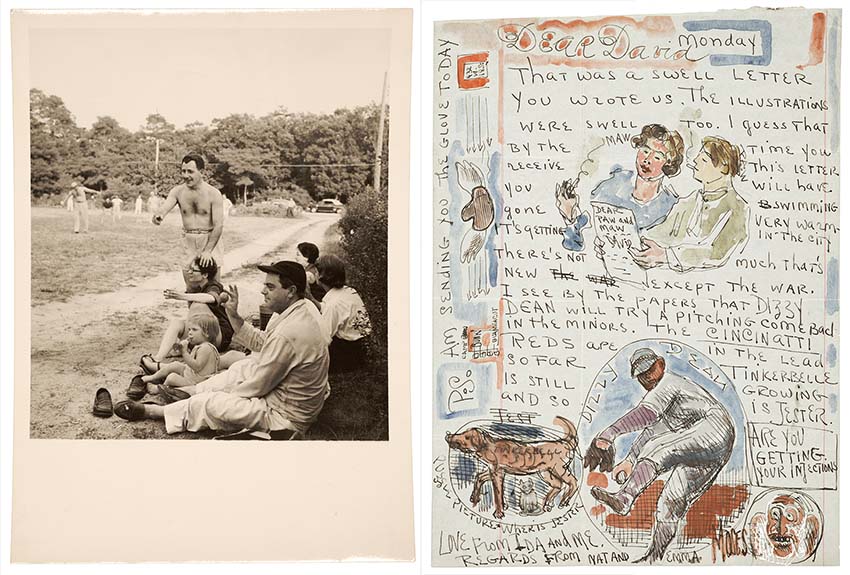 Dear David
Monday
THAT WAS A SWELL LETTER
YOU WROTE US. THE ILLUSTRATIONS
WERE SWELL TOO. I GUESS THAT
BY THE TIME YOU
RECEIVE THIS LETTER
YOU WILL HAVE
GONE SWIMMING
IT'S GETTING VERY WARM
IN THE CITY
THERE'S NOT MUCH THAT'S
NEW THE WAR EXCEPT THE WAR.
I SEE BY THE PAPERS THAT DIZZY
DEAN WILL TRY A PITCHING COME BACK
IN THE MINORS. THE CINCINATTI
REDS ARE IN THE LEAD
SO FAR TINKERBELLE
IS STILL GROWING
AND SO IS JESTER.
JEST
ARE YOU
GETTING
YOUR INJECTIONS
MAW
DEAR
PAW AND
MAW
DAVID
DIZZY DEAN
PICTURE WHERE IS JESTER
LOVE FROM IDA AND ME.
REGARDS FROM NAT AND EMMA
MOSES
P.S. AM SENDING YOU THE GLOVE TODAY